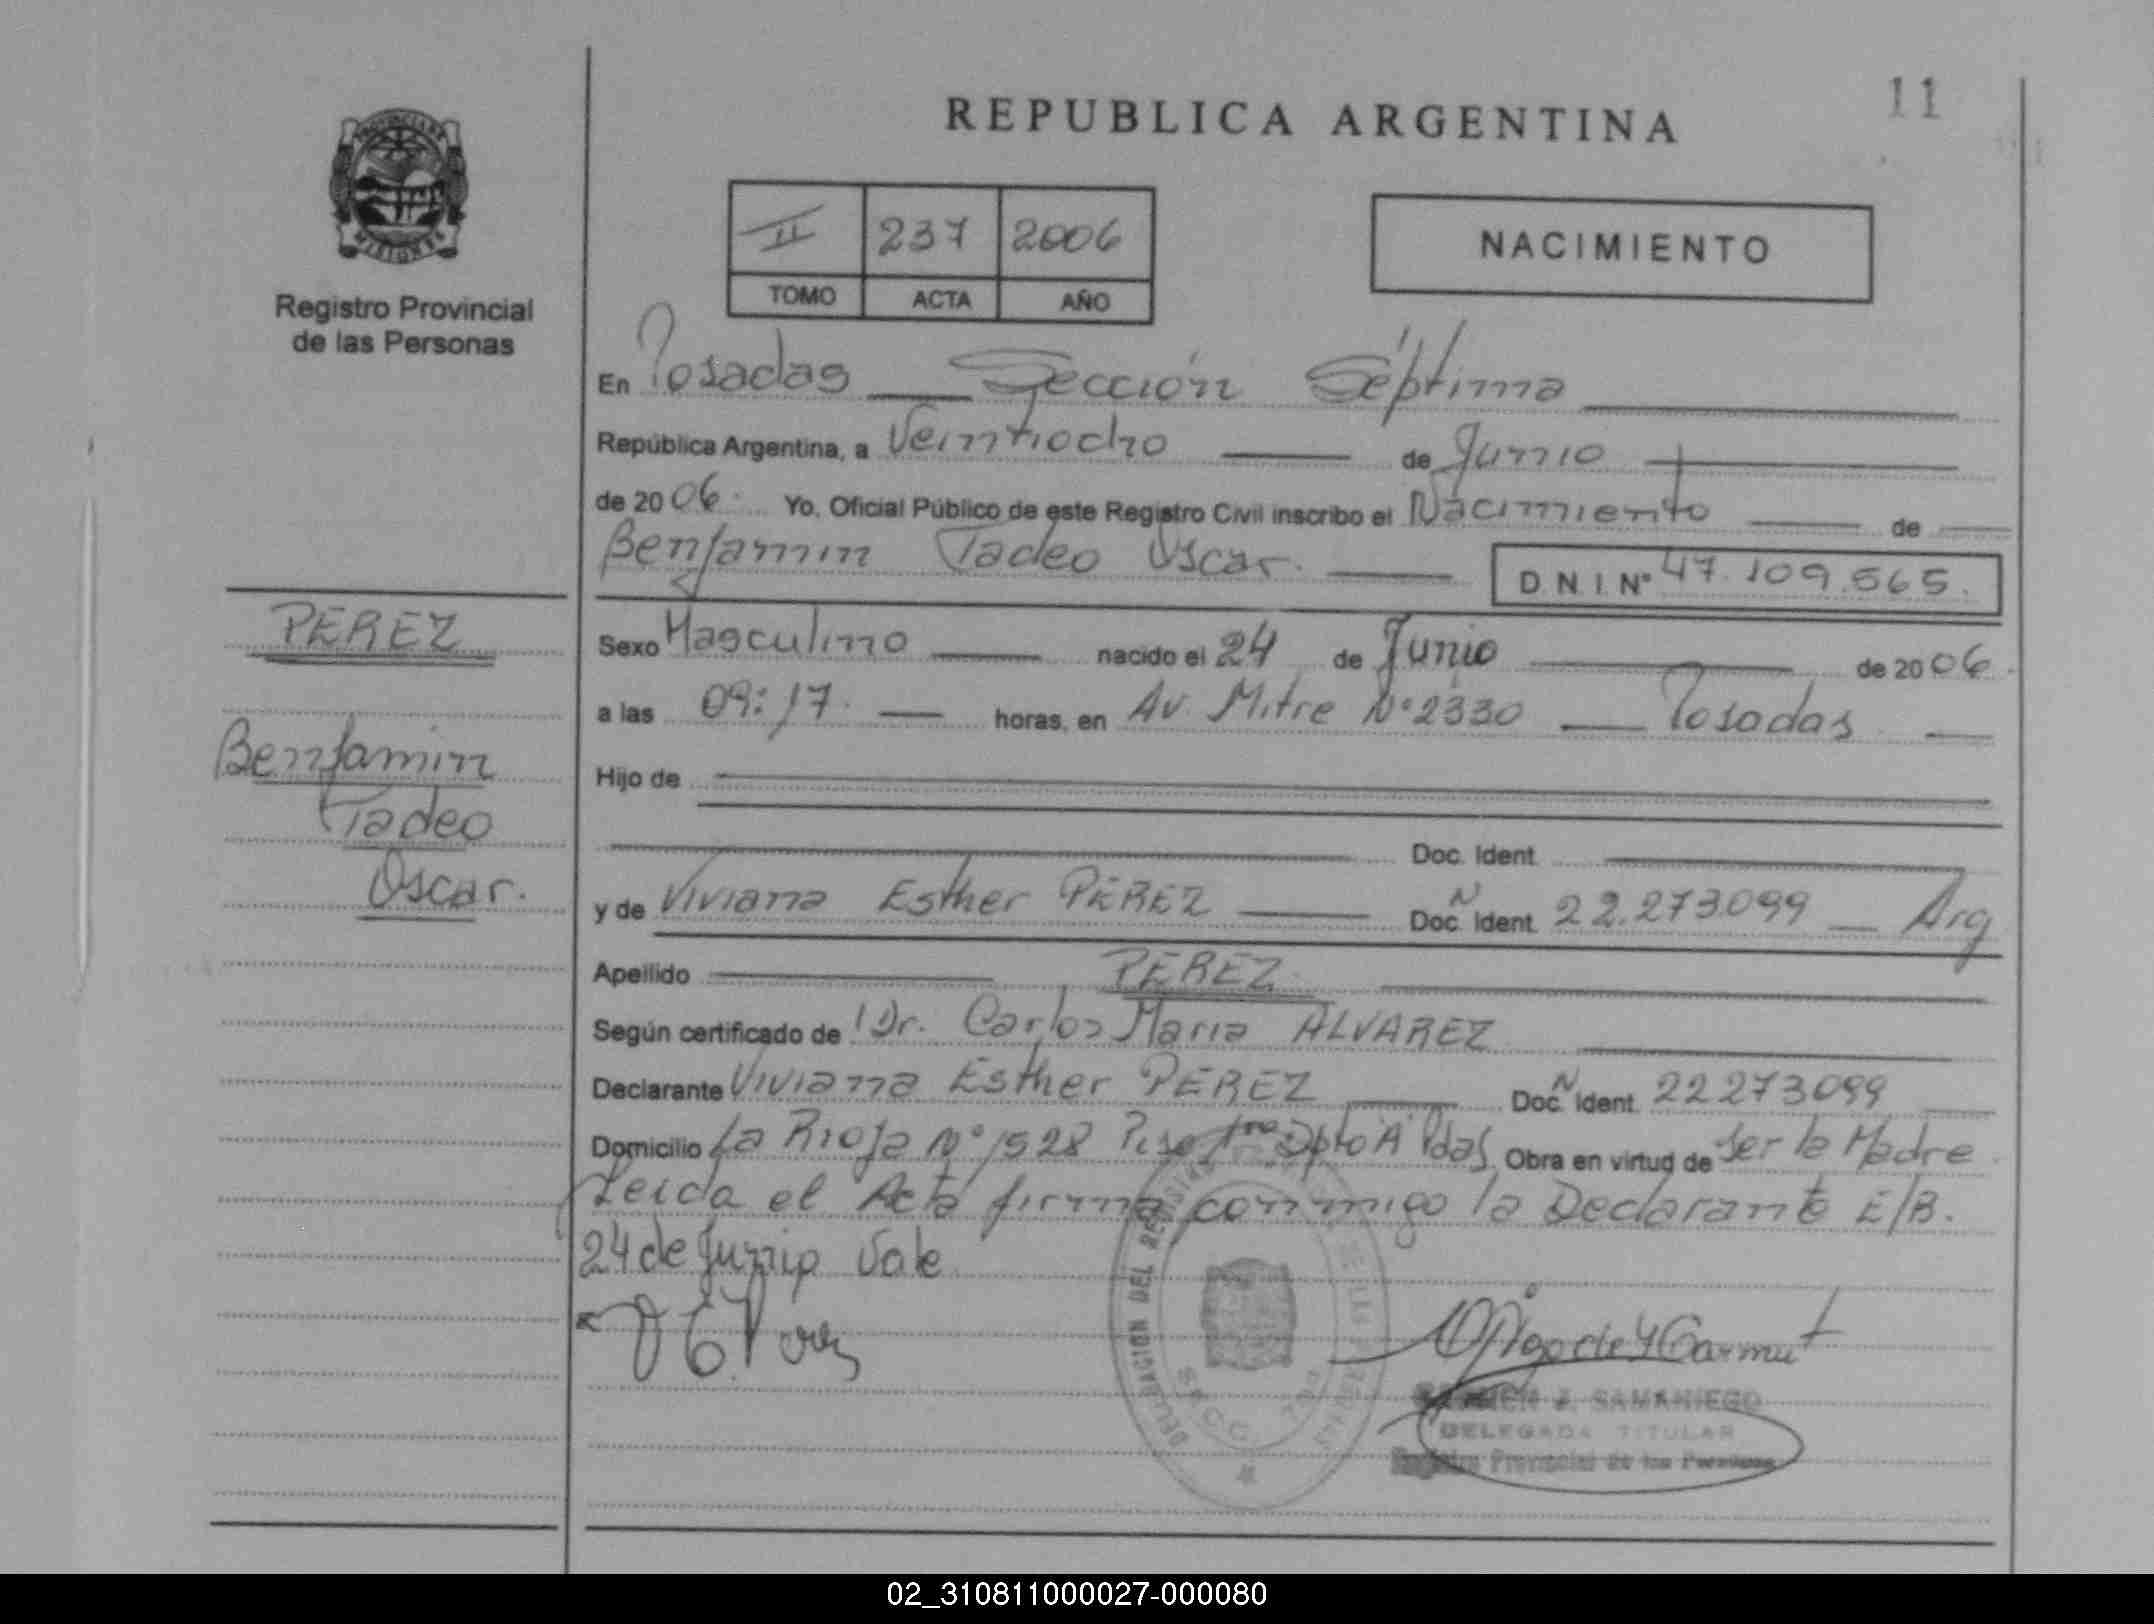 REPUBLICA ARGENTINA
11
PROVINCIA DE
MISIONES
Registro Provincial
de las Personas
II 237 2006
TOMO ACTA AÑO
NACIMIENTO
En Posadas Sección Séptima
República Argentina, a Veintiocho de Junio
de 2006. Yo, Oficial Público de este Registro Civil inscribo el Nacimiento de
Benjamin Tadeo Oscar. D.N.I. Nº 47.109.565.
PEREZ
Benjamin
Tadeo
Oscar.
Sexo Masculino nacido el 24 de Junio de 2006.
a las 09:17. horas, en Av. Mitre Nº 2330 Posadas
Hijo de
Doc. Ident.
y de Viviana Esther PEREZ Doc. N Ident. 22.273.099 Arg
Apellido PEREZ
Según certificado de Dr. Carlos Maria ALVAREZ
Declarante Viviana Esther PEREZ Doc. N Ident. 22273099
Domicilio La Rioja Nº 1528 Piso 1ro Dpto A Pdas Obra en virtud de ser la Madre.
Leida el Acta firma conmigo la Declarante E/B.
24 de Junio Vale
DELEGACION DEL REGISTRO DE LAS PERSONAS
SECC. 7ma
CARMEN J. SAMANIEGO
DELEGADA TITULAR
Registro Provincial de las Personas
02_310811000027-000080